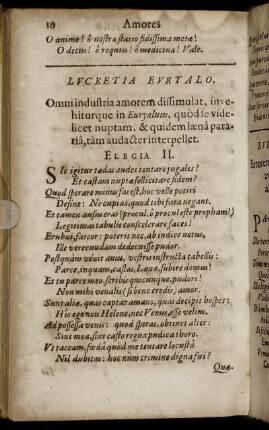 10 Amores
O anime! ô nostræ statio fidissima metæ!
O decus! ô requies! ô medicina! Vale.
LVCRETIA EVRYALO.
Omni industria amorem dissimulat, inve-
hiturque in Euryalum, quòd se vide-
licet nuptam, & quidem lænâ para-
riâ, tàm audacter interpellet.
ELEGIA II.
SIc igitur tædas audes tentare jugales?
Et castam nuptæ sollicitare fidem?
Quod sperare minùs fas est, hoc velle potiri
Desine: Ne cupias, quod tibi fata negant.
Et tamen ausus eras (procul, ô procul este prophani!)
Legitimas tabulis conscelerare faces!
Erubui, fateor: poteris nec, ab indice notus,
Ille verecundam dedecuisse pudor.
Postquàm venit anus, vestris instructa tabellis:
Parce, inquam, castas, Læna, subire domus!
Et tu parce meo scribis quicunque, pudori!
Non mihi venalis (si bene credis) amor.
Sunt aliæ, quas captes amans, quas decipis hospes:
Hîc ego non Helene, nec Venus, esse velim.
Ad possessa venis: quod speras, obtinet alter:
Sint mea, sint casto regna pudica thoro.
Vt taceam, fœdâ quòd me tentare locustâ
Nil dubitas: hoc num crimine digna fui?
Quæ-